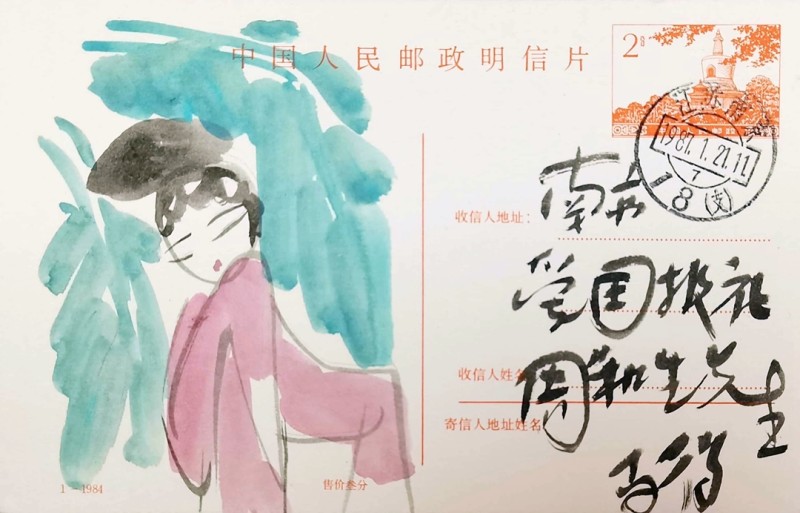 中国人民邮政明信片
2分
江苏
1987.1.21.11
7
18(支)
收信人地址：
南京
国报社
收信人姓名
周和生先生
寄信人地址姓名
1－1984
售价叁分